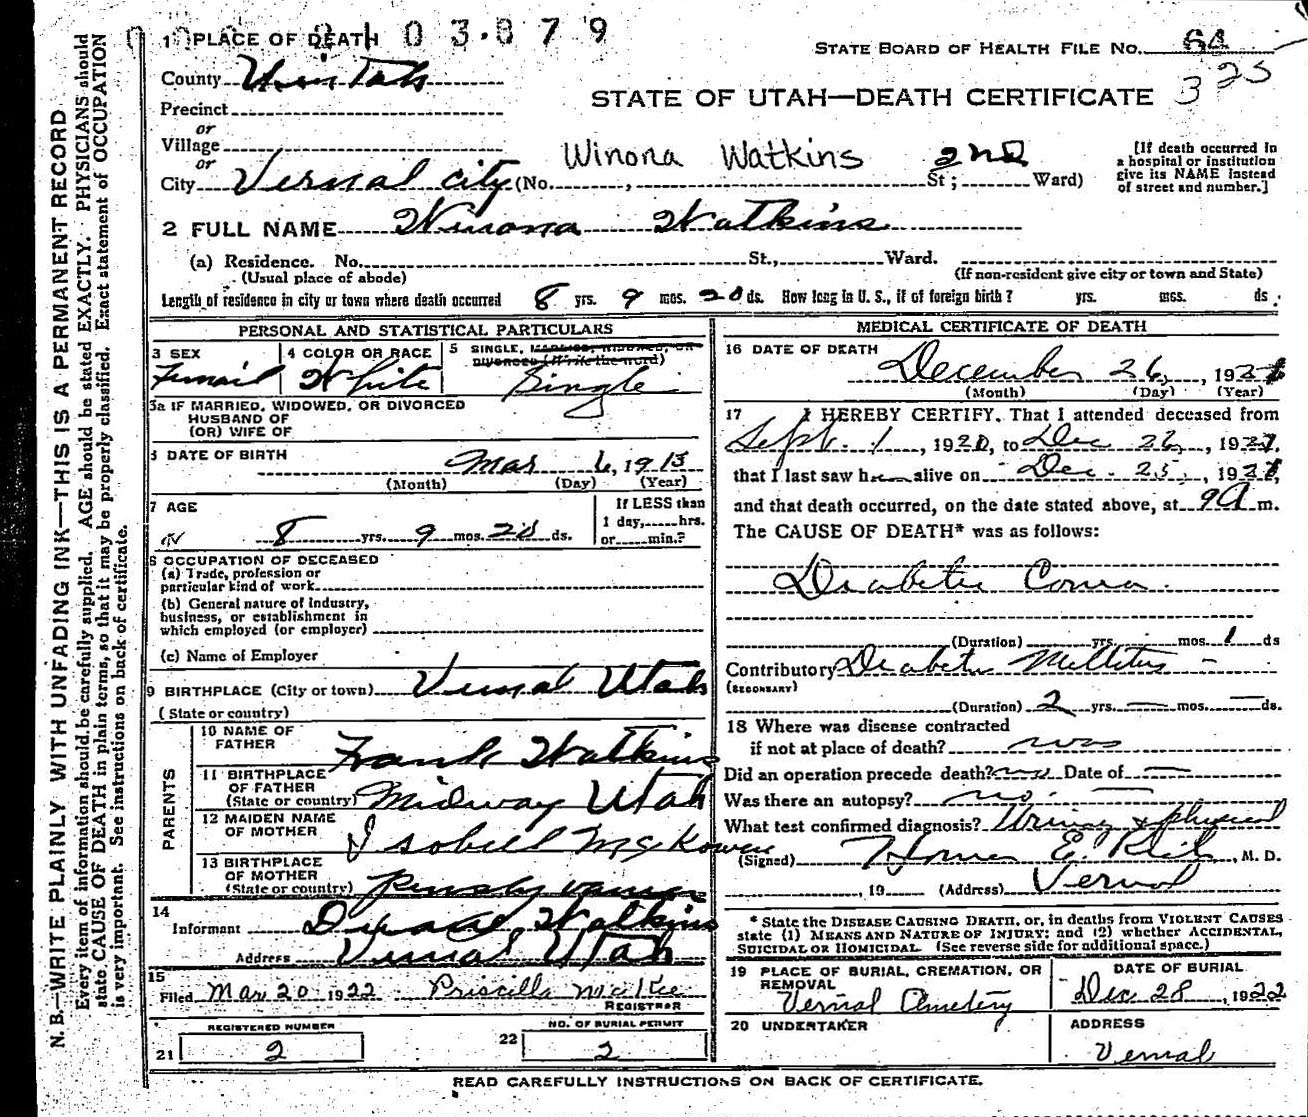 N. B.—WRITE PLAINLY WITH UNFADING INK—THIS IS A PERMANENT RECORD
Every item of information should be carefully supplied. AGE should be stated EXACTLY. PHYSICIANS should
state CAUSE OF DEATH in plain terms, so that it may be properly classified. Exact statement of OCCUPATION
is very important. See instructions on back of certificate.
03879
1 PLACE OF DEATH
STATE BOARD OF HEALTH FILE No. 64
325
County Uintah
STATE OF UTAH—DEATH CERTIFICATE
Precinct
or
Village
or
Winona Watkins 2nd
City Vernal city (No. , St; Ward)
[If death occurred in
a hospital or institution
give its NAME instead
of street and number.]
2 FULL NAME Winona Watkins
(a) Residence. No. St., Ward.
(Usual place of abode)
(If non-resident give city or town and State)
Length of residence in city or town where death occurred 8 yrs. 9 mos. 20 ds. How long in U. S., if of foreign birth? yrs. mos. ds.
PERSONAL AND STATISTICAL PARTICULARS
3 SEX
Femail
4 COLOR OR RACE
White
5 SINGLE, MARRIED, WIDOWED, OR
DIVORCED (Write the word)
Single
5a IF MARRIED, WIDOWED, OR DIVORCED
HUSBAND OF
(OR) WIFE OF
DATE OF BIRTH
Mar 6, 1913
(Month) (Day) (Year)
7 AGE
8 yrs. 9 mos. 20 ds.
If LESS than
1 day, hrs.
or min.?
OCCUPATION OF DECEASED
(a) Trade, profession or
particular kind of work
(b) General nature of industry,
business, or establishment in
which employed (or employer)
(c) Name of Employer
9 BIRTHPLACE (City or town) Vernal Utah
(State or country)
PARENTS
10 NAME OF
FATHER Frank Watkins
11 BIRTHPLACE
OF FATHER
(State or country) Midway Utah
12 MAIDEN NAME
OF MOTHER Isobell
13 BIRTHPLACE
OF MOTHER
(State or country)
14
Informant Watkins
Address Vernal Utah
15
Filed Mar 20 1922 Priscilla McKee
REGISTRAR
REGISTERED NUMBER
21 2
NO. OF BURIAL PERMIT
22 2
MEDICAL CERTIFICATE OF DEATH
16 DATE OF DEATH
December 26, 1921
(Month) (Day) (Year)
17 I HEREBY CERTIFY, That I attended deceased from
Sept. 1, 1921, to Dec 26, 1921,
that I last saw her alive on Dec. 25, 1921,
and that death occurred, on the date stated above, at 9 A m.
The CAUSE OF DEATH* was as follows:
Diabetic Coma.
(Duration) yrs. mos. 1 ds
Contributory Diabetes Mellitus
(SECONDARY)
(Duration) 2 yrs. — mos. — ds.
18 Where was disease contracted
if not at place of death?
Did an operation precede death? no Date of —
Was there an autopsy? no. —
What test confirmed diagnosis? Urine & physical
(Signed) Homer E. , M. D.
, 19 (Address) Vernal
* State the DISEASE CAUSING DEATH, or, in deaths from VIOLENT CAUSES
state (1) MEANS AND NATURE OF INJURY; and (2) whether ACCIDENTAL,
SUICIDAL OR HOMICIDAL. (See reverse side for additional space.)
19 PLACE OF BURIAL, CREMATION, OR
REMOVAL
Vernal Cemetery
DATE OF BURIAL
Dec 28, 1922
20 UNDERTAKER
ADDRESS
Vernal
READ CAREFULLY INSTRUCTIONS ON BACK OF CERTIFICATE.